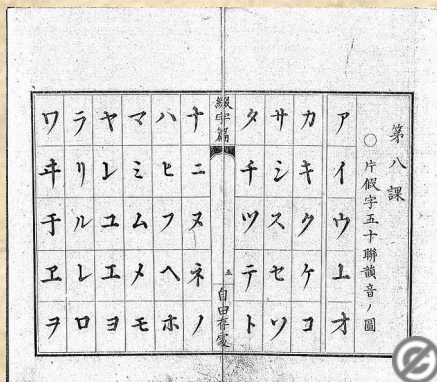 第八課
○片假字五十聯韻音ノ圖
アイウ上オ
カキクケコ
サシスセソ
タチツテト
綴字篇
五
自由
ナニヌネノ
ハヒフヘホ
マミムメモ
ヤ𛄠ユエヨ
ラリルレロ
ワヰ于ヱヲ